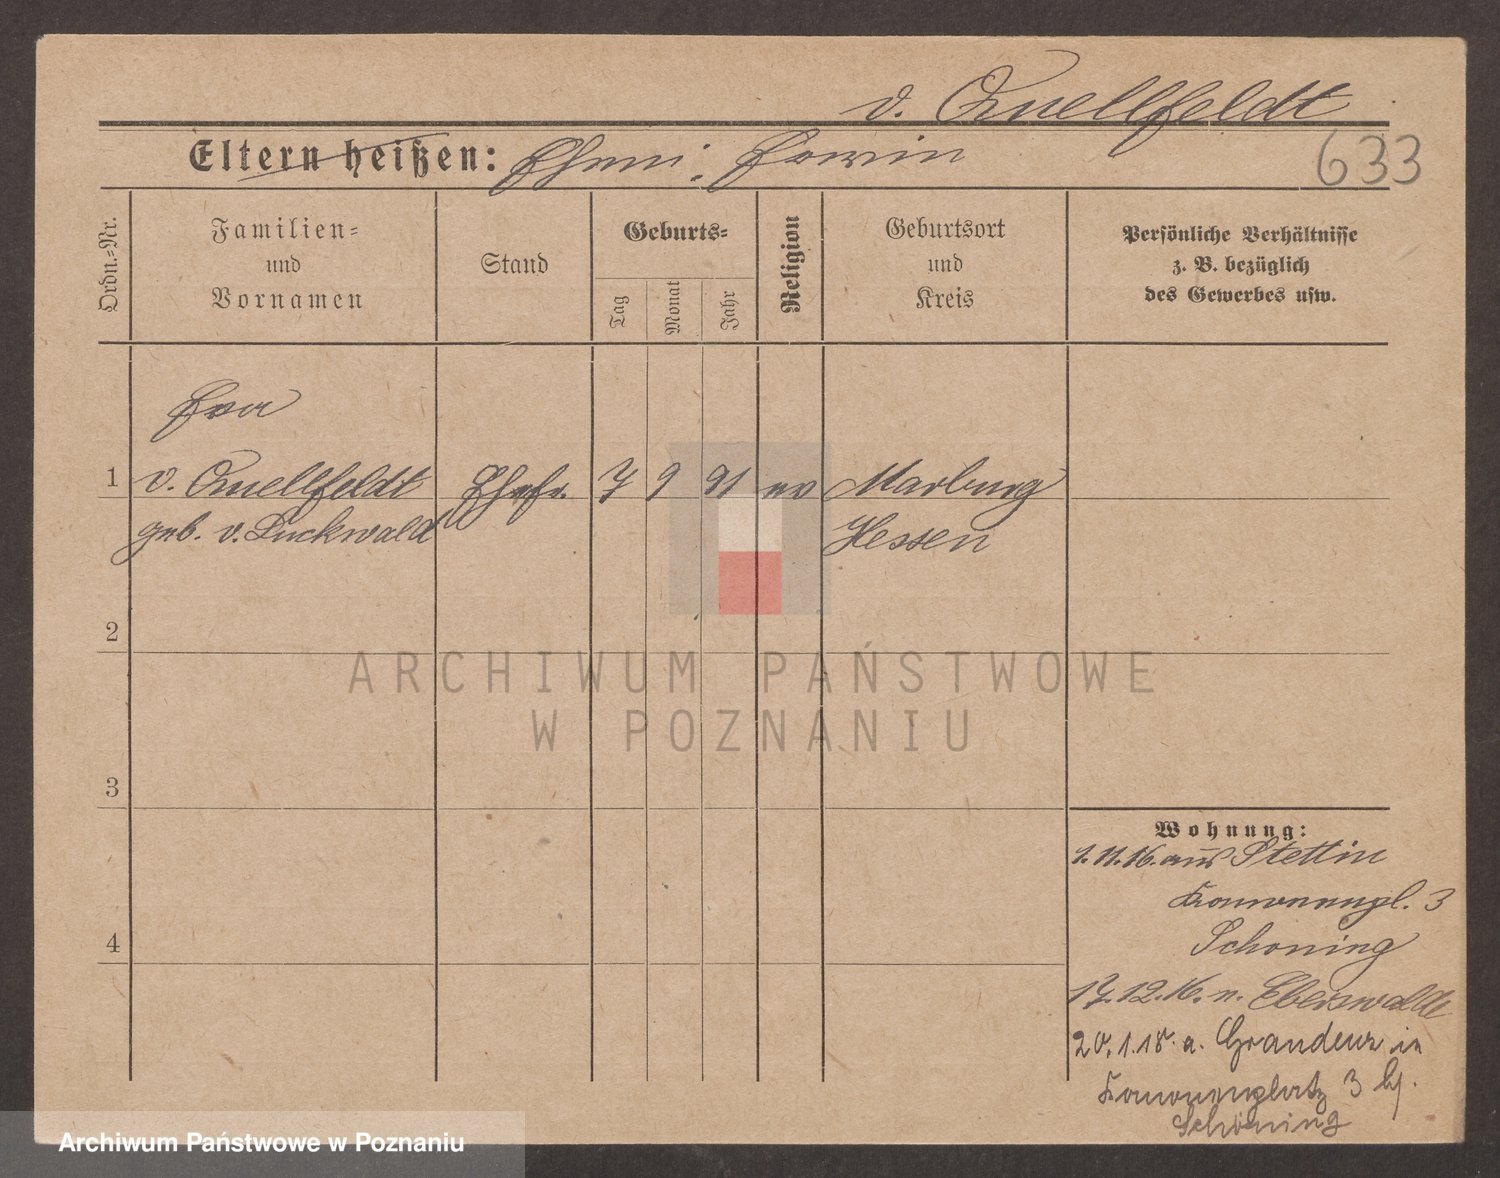 v. Quellfeldt
Eltern heißen: Ehem: Erwin
633
Ordn.-Nr.
Familien-
und
Vornamen
Stand
Geburts-
Tag
Monat
Jahr
Religion
Geburtsort
und
Kreis
Persönliche Verhältnisse
z. B. bezüglich
des Gewerbes usw.
Eva
1 v. Quellfeldt Ehefr. 7 9 91 ev Marburg
geb. v. Luckwald Hessen
2
ARCHIWUM PAŃSTWOWE
W POZNANIU
3
Wohnung:
1.11.16. aus Stettin
3
Schoning
4
17.12.16. n. Eberswalde
20.1.18. a. Graudenz in
3 b/.
Schöning
Archiwum Państwowe w Poznaniu